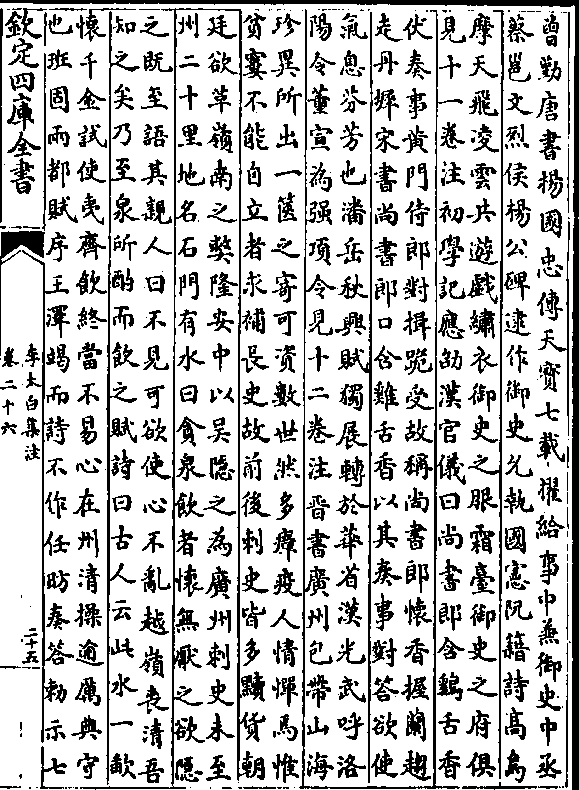 曽勤唐書楊國忠傳天寳七載擢給事中兼御史中丞
蔡邕文烈侯楊公碑逮作御史允執國憲阮籍詩高鳥
摩天飛凌雲共遊戲繡衣御史之服霜臺御史之府俱
見十一卷注初學記應劭漢官儀曰尚書郎含鷄舌香
伏奏事黄門侍郎對揖跪受故稱尚書郎懷香握蘭趨
走丹墀宋書尚書郎口含雞舌香以其奏事對答欲使
氣息芬芳也潘岳秋興賦獨展轉於華省漢光武呼洛
陽令董宣為强項令見十二卷注晉書廣州包帶山海
珍異所出一篋之寄可資數世然多瘴疫人情憚焉惟
貧窶不能自立者求補長史故前後刺史皆多黷貨朝
廷欲革嶺南之獘隆安中以吳隱之為廣州刺史未至
州二十里地名石門有水曰貪泉飲者懷無厭之欲隱
之既至語其親人曰不見可欲使心不亂越嶺喪清吾
知之矣乃至泉所酌而飲之賦詩曰古人云此水一歃
懷千金試使夷齊飲終當不易心在州清操逾厲典守
也班固兩都賦序王澤竭而詩不作任昉奏答勅示七
欽定四庫全書
李太白集注
卷二十六
二十五